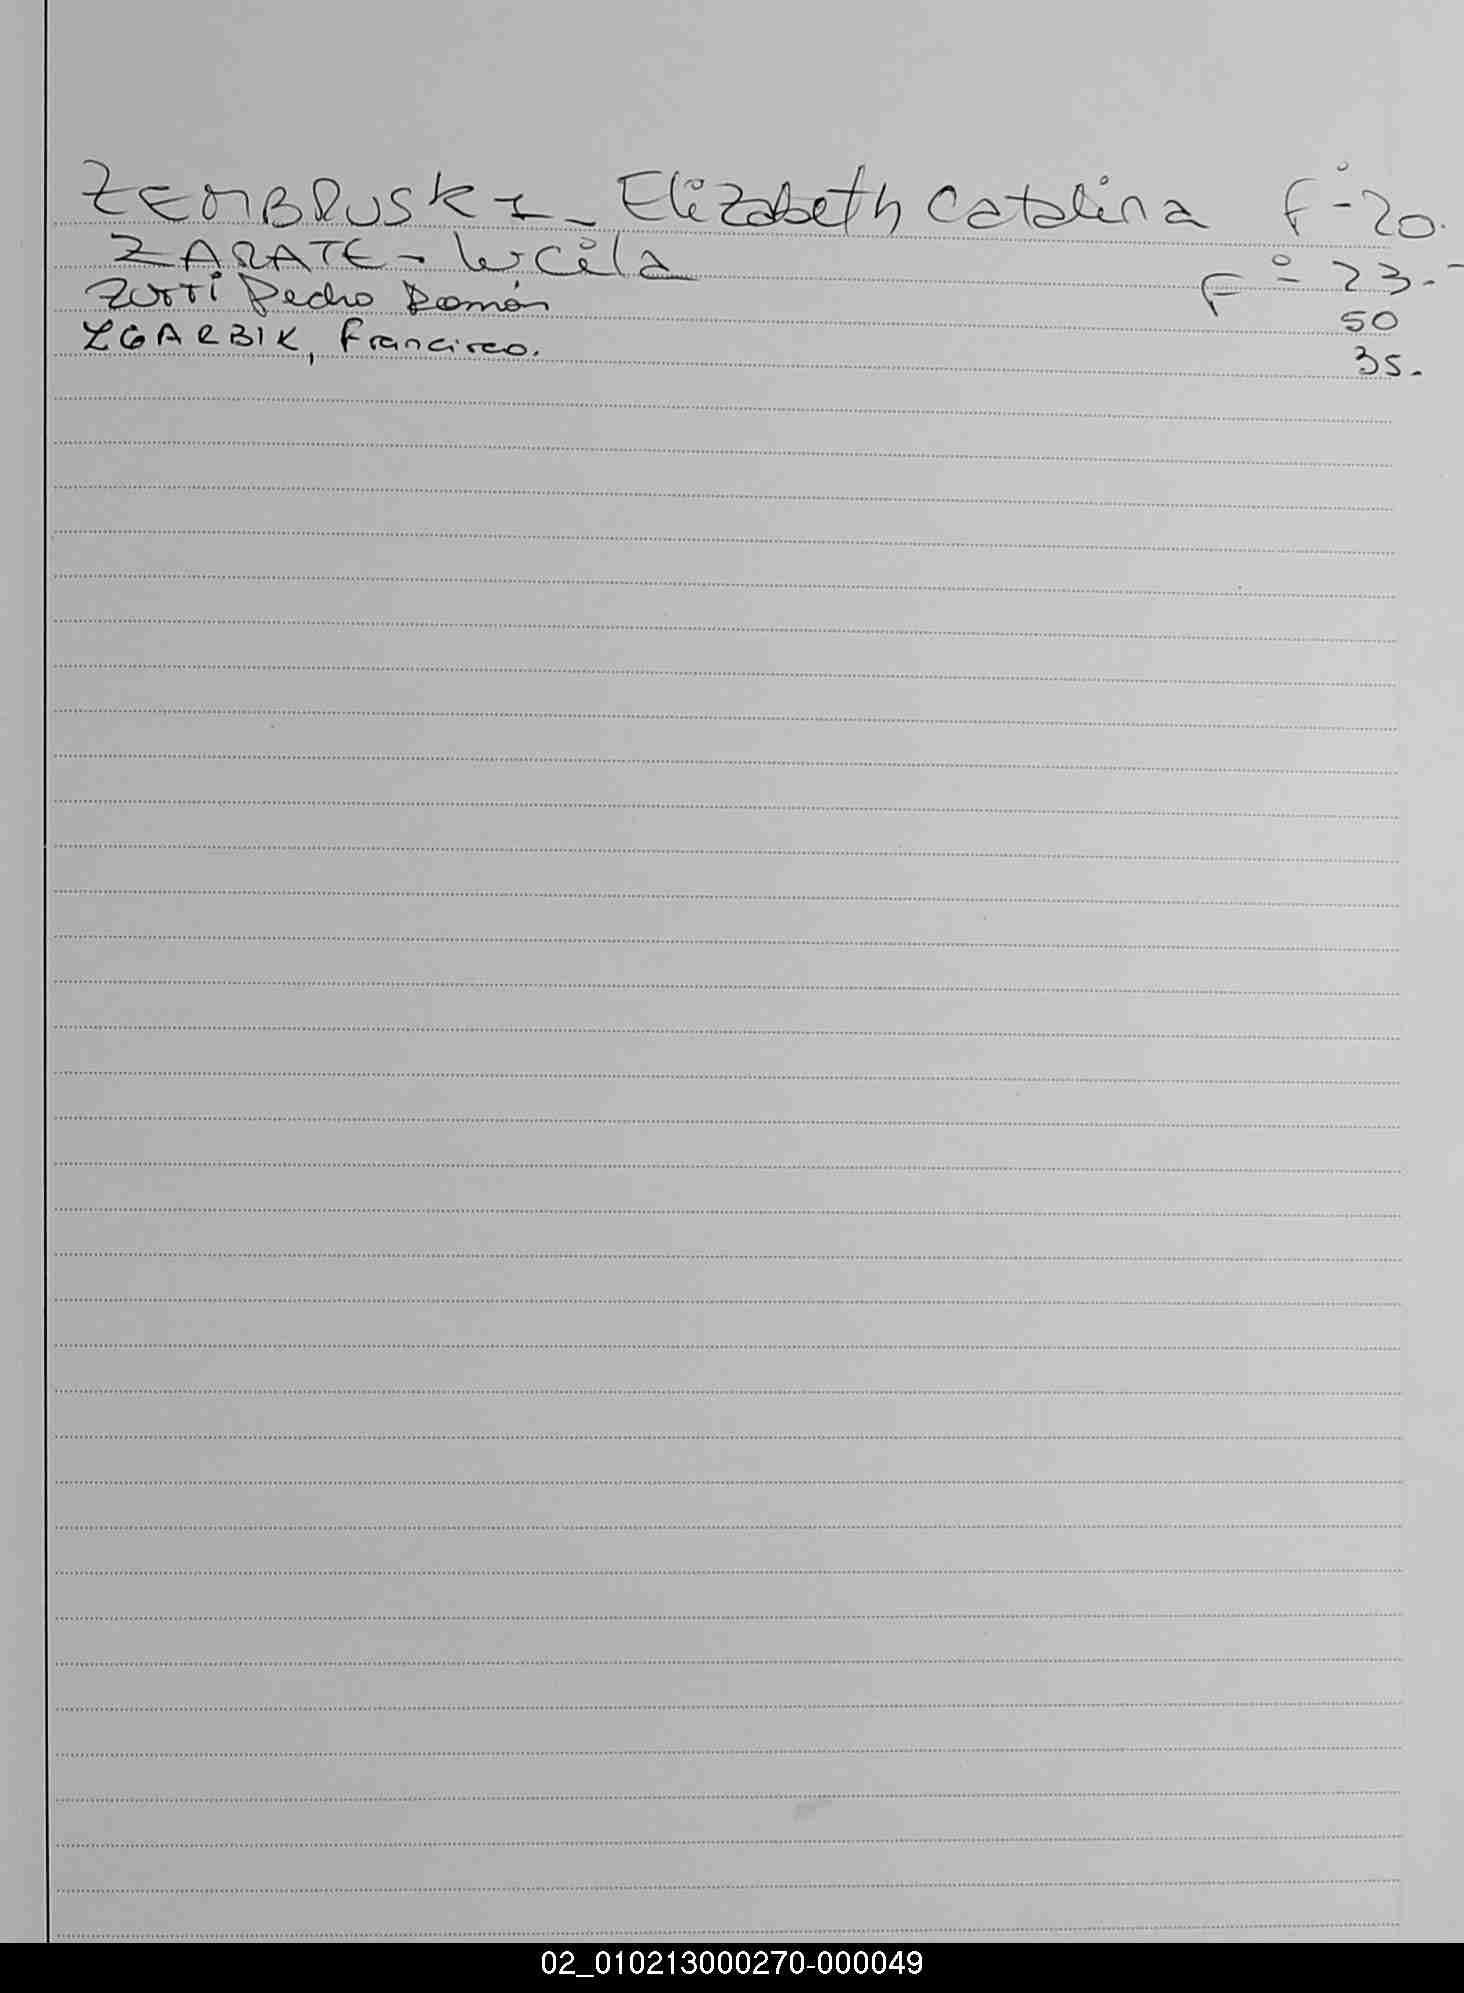 ZEMBRUSKI - Elizabeth Catalina Fº 20.
ZARATE - Lucila Fº 23.-
Zutti Pedro Román 50
ZGARBIK, Francisco. 35.
02_010213000270-000049